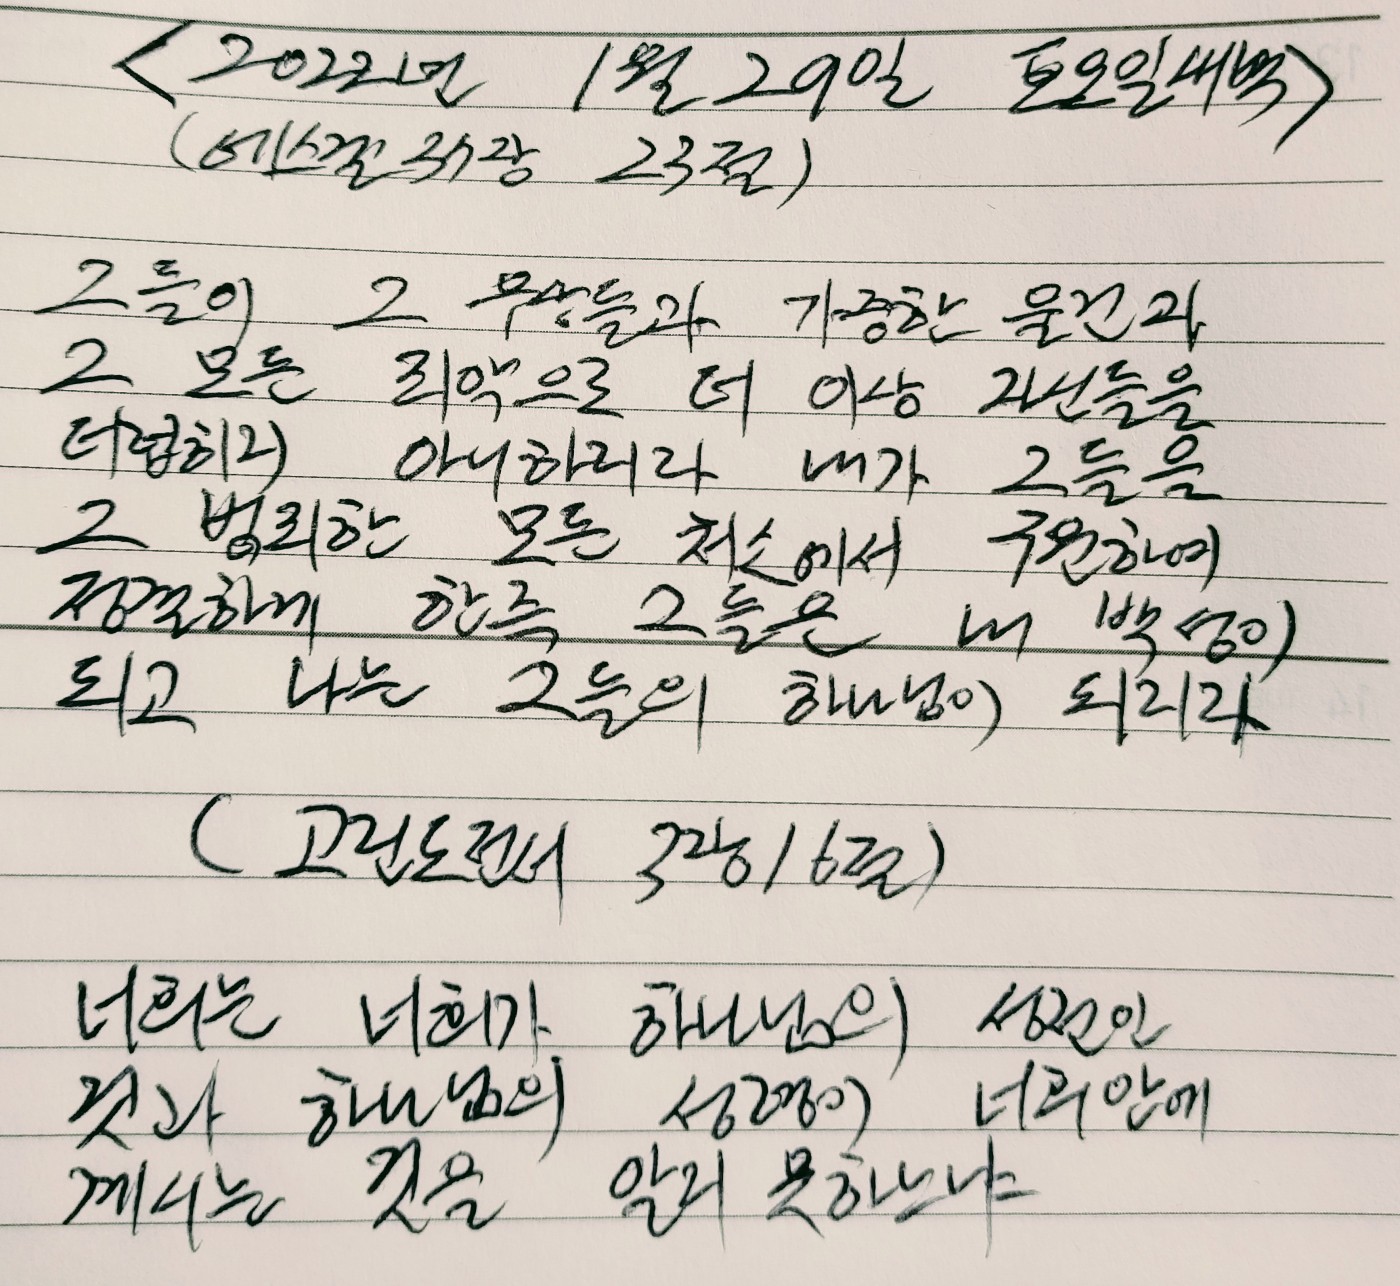 <2022년 1월 29일 토요일새벽>
(에스겔 37장 23절)
그들이 그 우상들과 가증한 물건과
그 모든 죄악으로 더 이상 자신들을
더럽히지 아니하리라 내가 그들을
그 범죄한 모든 처소에서 구원하여
정결하게 한즉 그들은 내 백성이
되고 나는 그들의 하나님이 되리라
(고린도전서 3장16절)
너희는 너희가 하나님의 성전인
것과 하나님의 성령이 너희 안에
계시는 것을 알지 못하느냐